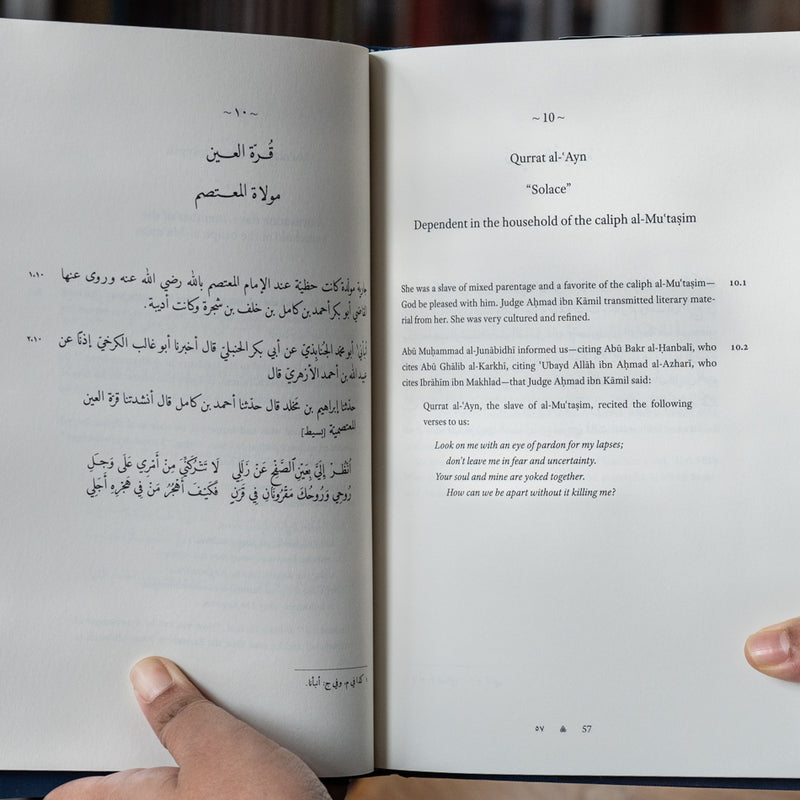 ~١٠~
قُرّة العـين
مولاة المعـتصم
١،١٠
جارية مولّدة كانت حظيّة عند الإمام المعتصم بالله رضي الله عنه وروى عنها
القاضي أبو بكر أحمد بن كامل بن خلف بن شجرة وكانت أديبة.
٢،١٠
أبو محمّد الجُنابذيّ عن أبي بكر الحنبليّ قال أخبرنا أبو غالب الكرخيّ إذنًا عن
عبيد الله بن أحمد الأزهريّ قال
حدّثنا إبراهيم بن مَخلد قال حدّثنا أحمد بن كامل قال أنشدتنا قرّة العين
المعتصميّة [بسيط]
اُنْظُرْ إِلَيَّ بِعَيْنِ ٱلصَّفْحِ عَنْ زَلَلِي لَا تَتْرُكَنِّي مِنْ أَمْرِي عَلَى وَجَلِ
رُوحِي وَرُوحُكَ مَقْرُونَانِ فِي قَرَنٍ فَكَيْفَ أَهْجُرُ مَنْ فِي هَجْرِهِ أَجَلِي
كذا في م، وفي ح: أنبأنا.
~ 10 ~
Qurrat al-ʿAyn
“Solace”
Dependent in the household of the caliph al-Muʿtaṣim
She was a slave of mixed parentage and a favorite of the caliph al-Muʿtaṣim—
10.1
God be pleased with him. Judge Aḥmad ibn Kāmil transmitted literary mate-
rial from her. She was very cultured and refined.
Abū Muḥammad al-Junābidhī informed us—citing Abū Bakr al-Ḥanbalī, who
10.2
cites Abū Ghālib al-Karkhī, citing ʿUbayd Allāh ibn Aḥmad al-Azharī, who
cites Ibrāhīm ibn Makhlad—that Judge Aḥmad ibn Kāmil said:
Qurrat al-ʿAyn, the slave of al-Muʿtaṣim, recited the following
verses to us:
Look on me with an eye of pardon for my lapses;
don’t leave me in fear and uncertainty.
Your soul and mine are yoked together.
How can we be apart without it killing me?
٥٧ 57